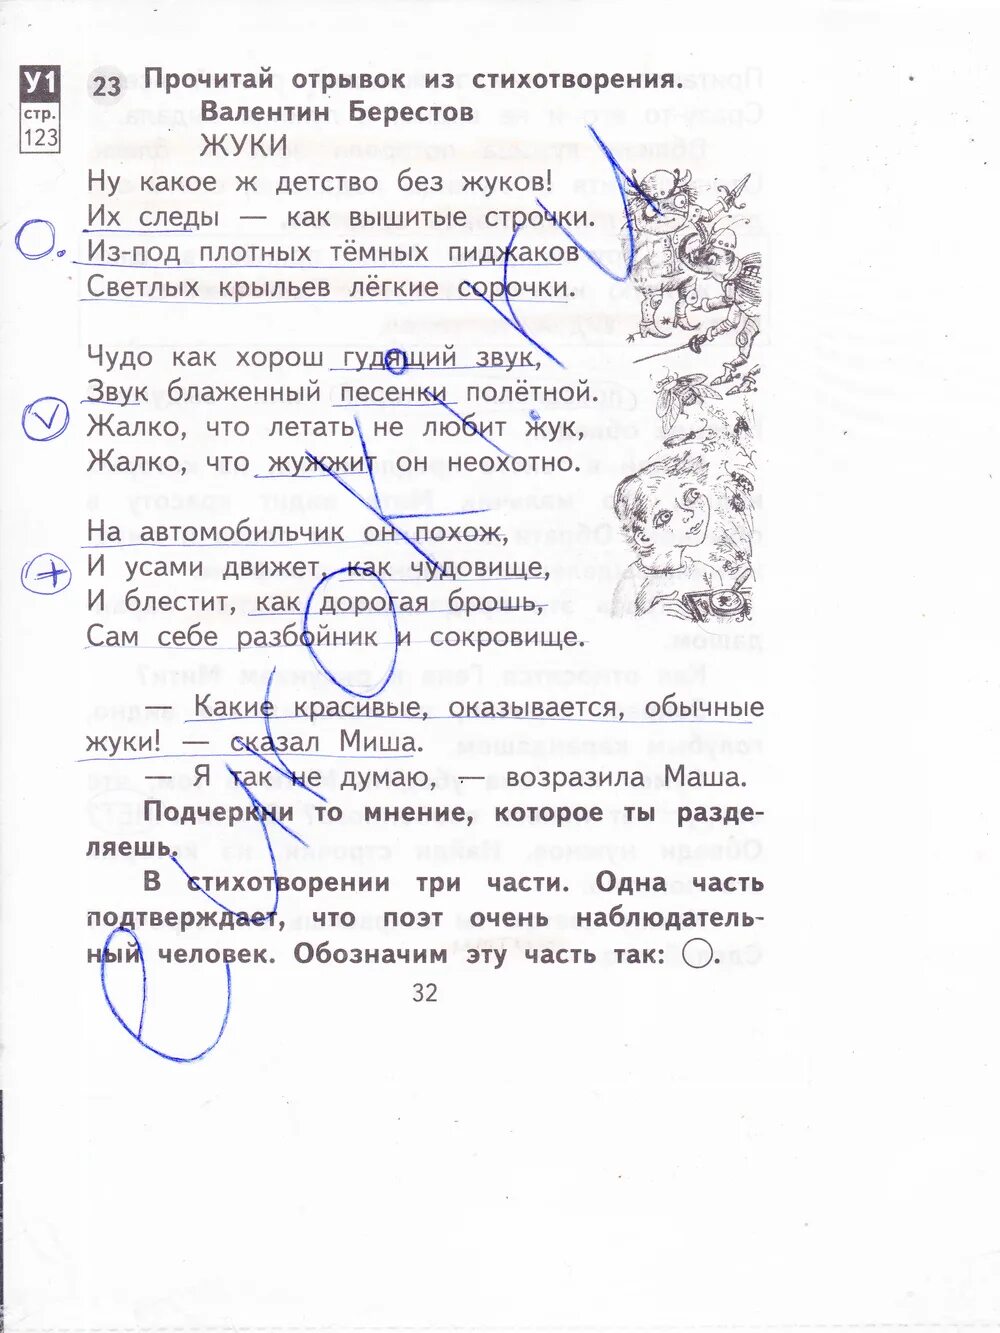 У1
стр.
123
23 Прочитай отрывок из стихотворения.
Валентин Берестов
ЖУКИ
Ну какое ж детство без жуков!
Их следы — как вышитые строчки.
Из-под плотных тёмных пиджаков
Светлых крыльев лёгкие сорочки.
Чудо как хорош гудящий звук,
Звук блаженный песенки полётной.
Жалко, что летать не любит жук,
Жалко, что жужжит он неохотно.
На автомобильчик он похож,
И усами движет, как чудовище,
И блестит, как дорогая брошь,
Сам себе разбойник и сокровище.
— Какие красивые, оказывается, обычные
жуки! — сказал Миша.
— Я так не думаю, — возразила Маша.
Подчеркни то мнение, которое ты разде-
ляешь.
В стихотворении три части. Одна часть
подтверждает, что поэт очень наблюдатель-
ный человек. Обозначим эту часть так: ◯.
32